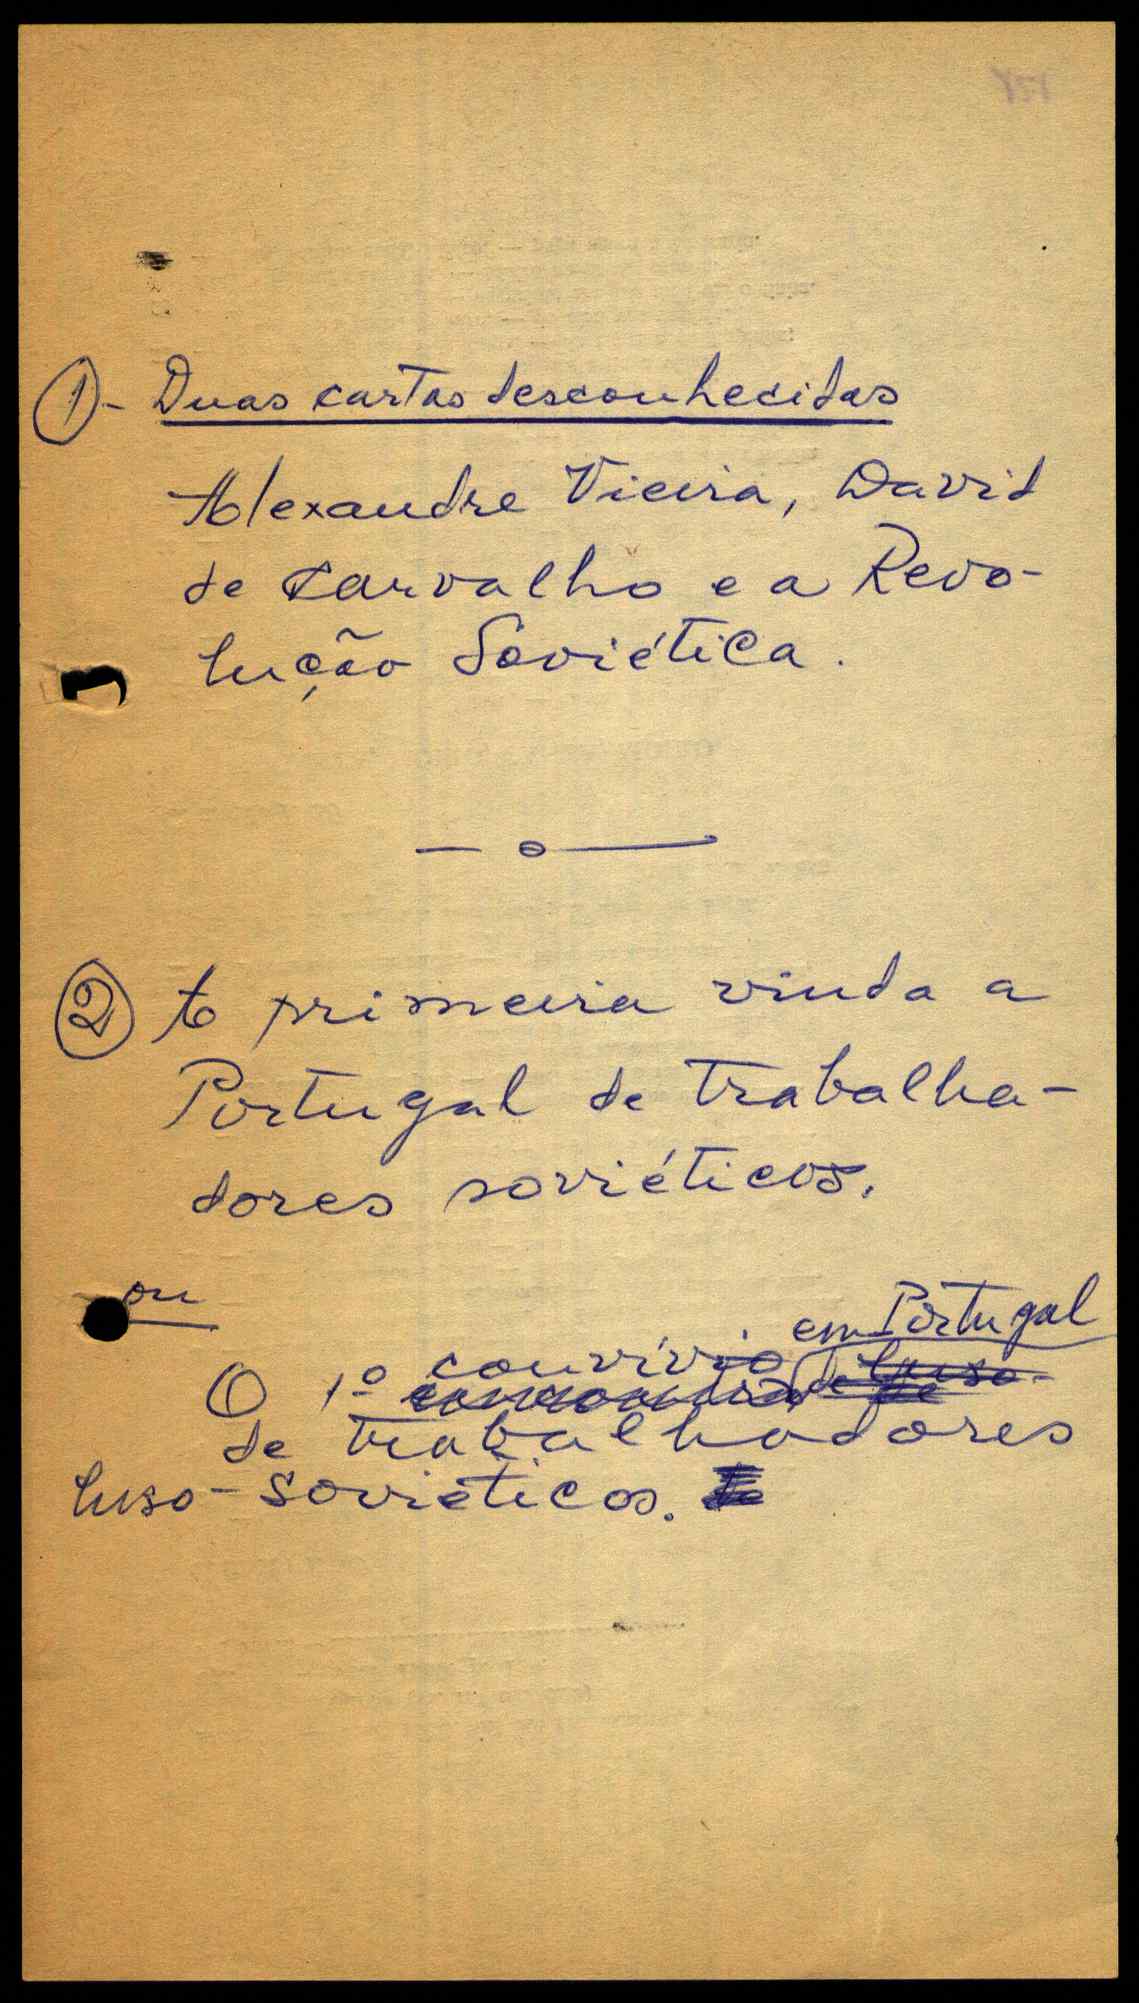 1 - Duas cartas desconhecidas
Alexandre Vieira, David
de Carvalho e a Revo-
lução Soviética.
2 A primeira vinda a
Portugal de trabalha-
dores soviéticos.
ou
em Portugal
O 1º convívio
de trabalhadores
luso-soviéticos.